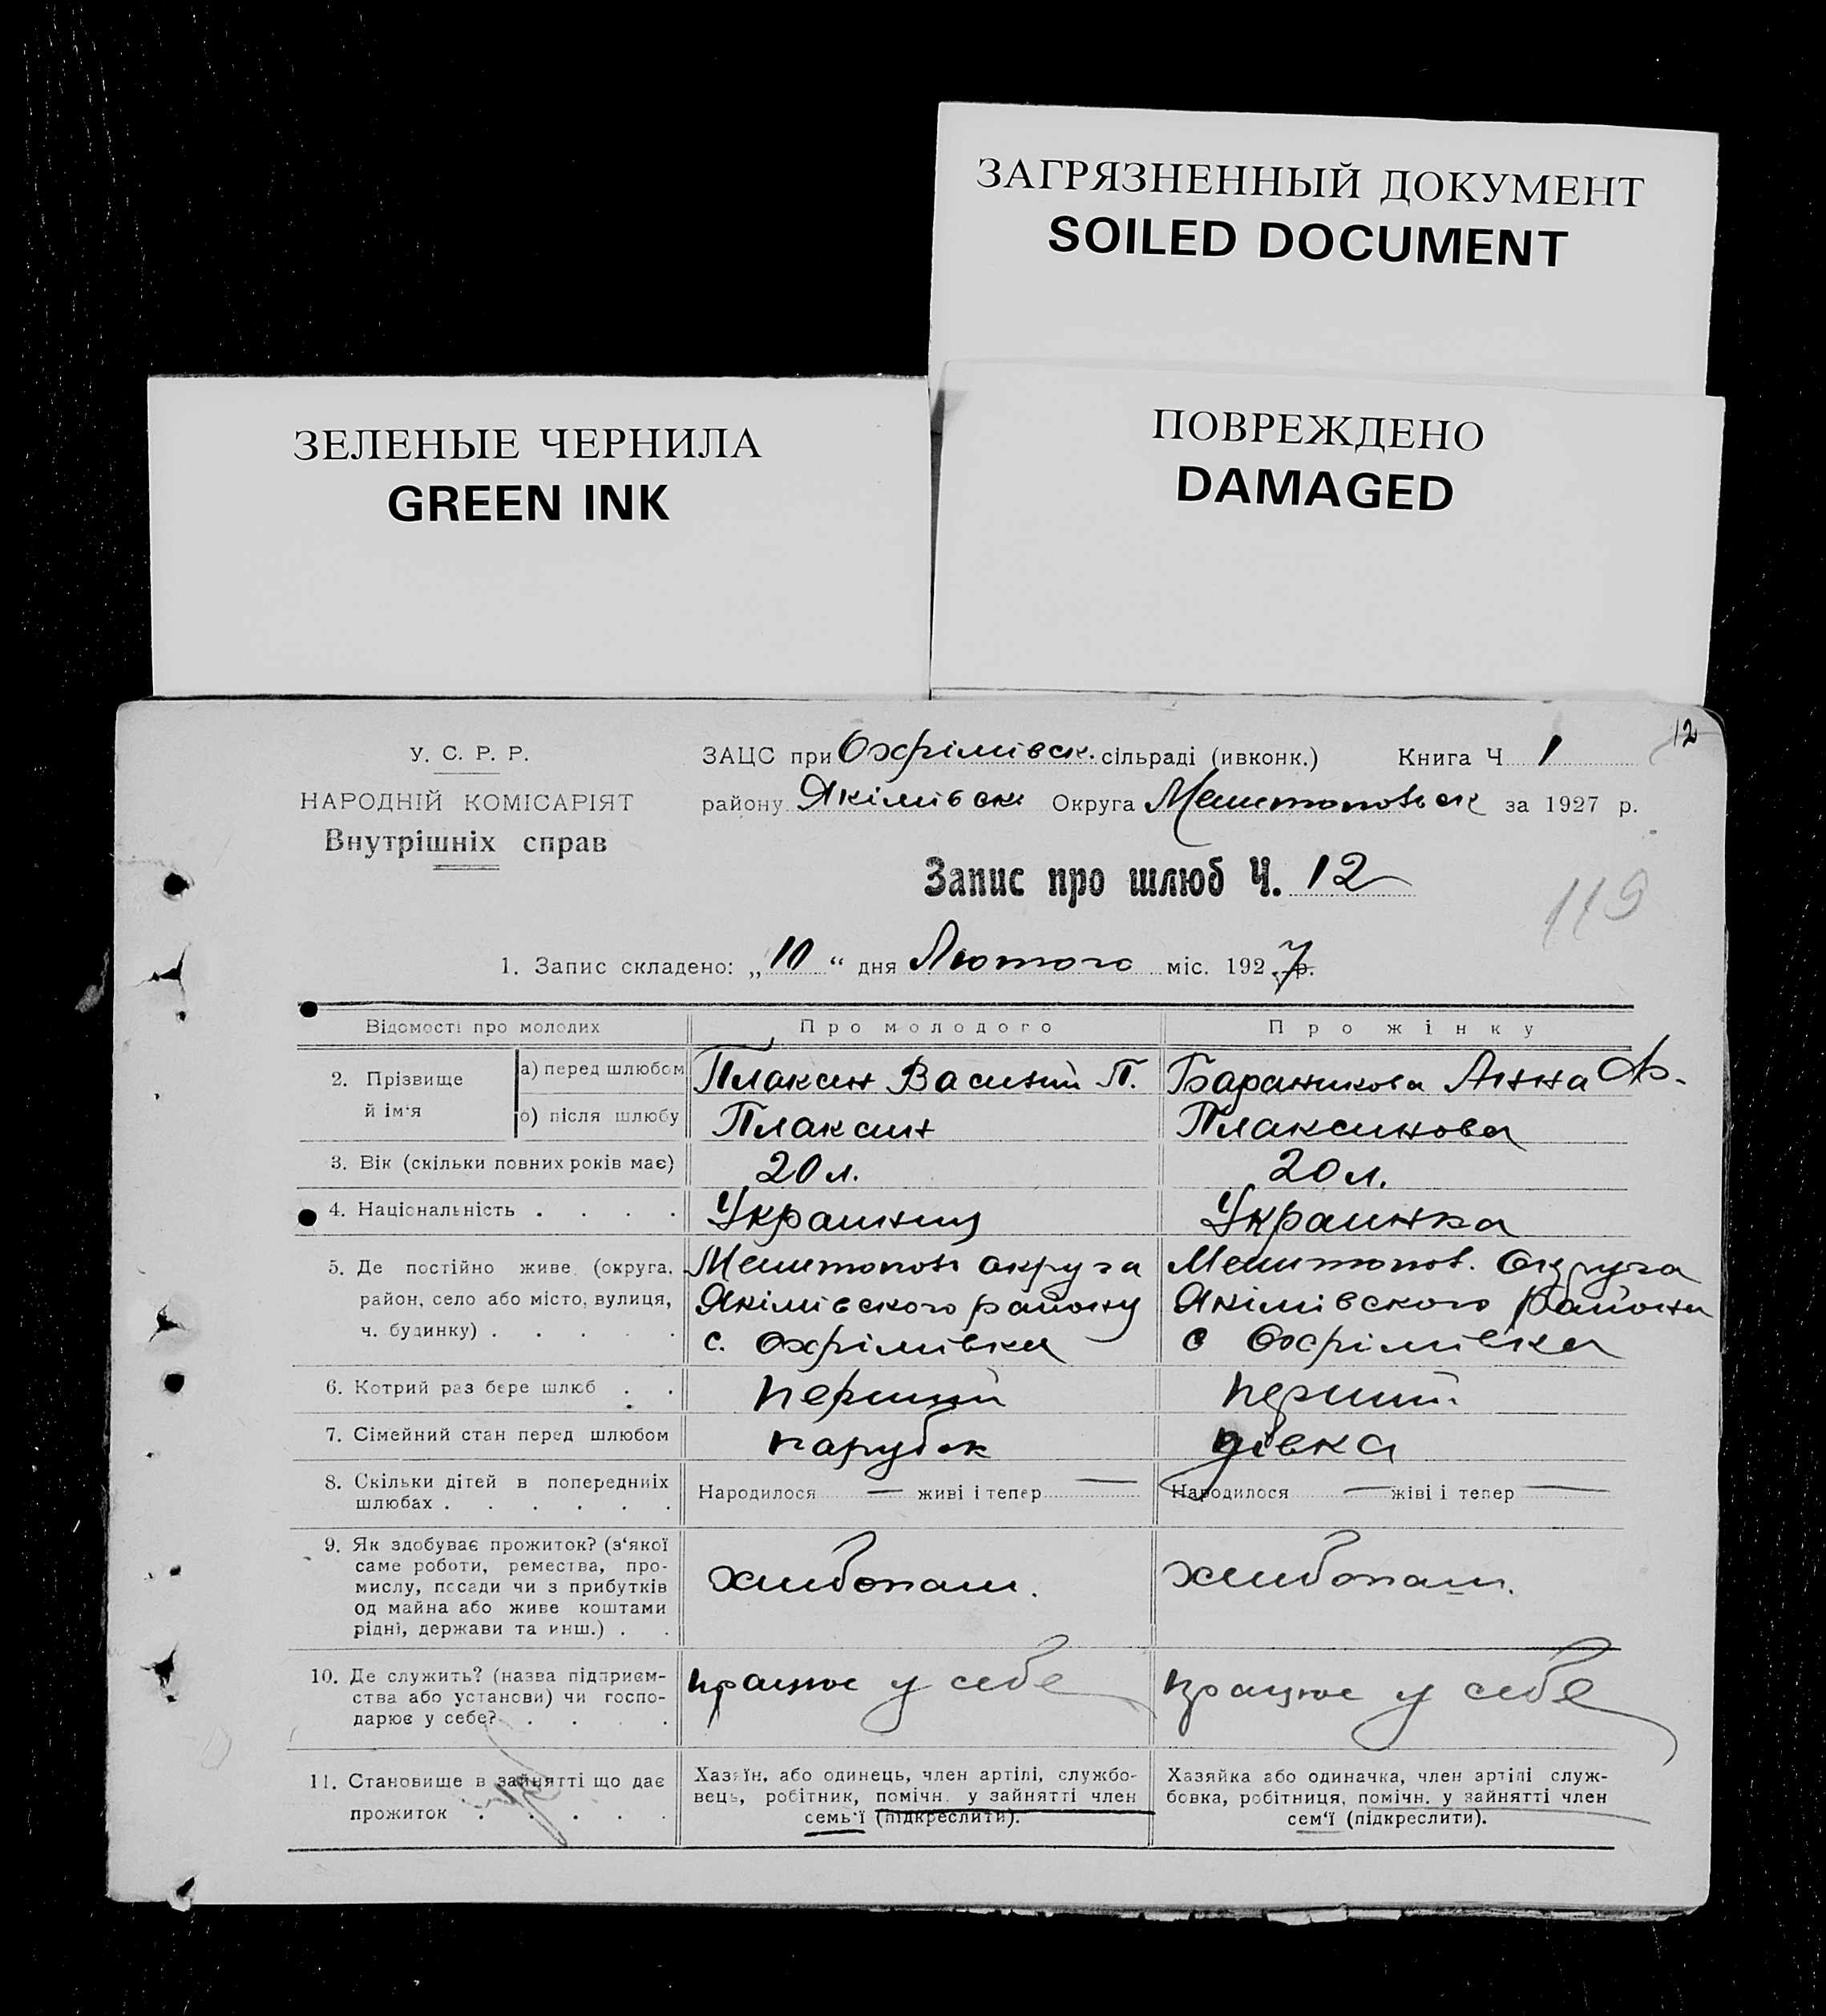 ЗАГРЯЗНЕННЫЙ ДОКУМЕНТ
SOILED DOCUMENT
ЗЕЛЕНЫЕ ЧЕРНИЛА
GREEN INK
ПОВРЕЖДЕНО
DAMAGED
12
У. С. Р. Р.
НАРОДНІЙ КОМІСАРІЯТ
Внутрішніх справ
ЗАЦС при Охрімівск. сільраді (ивконк.) Книга Ч 1
району Якімівск Округа Мелитопольск за 1927 р.
Запис про шлюб Ч. 12
119
1. Запис складено: „10“ дня Лютого міс. 1927 р.
Відомості про молодих Про молодого Про жінку
2. Прізвище й ім‘я а) перед шлюбом Плаксин Василий П. Баранникова Анна Ф.
б) після шлюбу Плаксин Плаксинова
3. Вік (скільки повних років має) 20 л. 20 л.
4. Національність . . . . Украинец Украинка
5. Де постійно живе (округа, Мелитополь округа Мелитопол. Округа
район, село або місто, вулиця, Якімівского району Якімівского району
ч. будинку) . . . . . с. Охрімівка с Охрімівка
6. Котрий раз бере шлюб . . перший перший
7. Сімейний стан перед шлюбом парубок дівка
8. Скільки дітей в попередніх
шлюбах . . . . . . Народилося — живі і тепер — Народилося — жіві і тепер —
9. Як здобуває прожиток? (з‘якої
саме роботи, ремества, про-
мислу, посади чи з прибутків хлибопаш. хлибопаш.
од майна або живе коштами
рідні, держави та инш.) . .
10. Де служить? (назва підприєм- працює у себе працює у себе
ства або установи) чи госпо-
дарює у себе? . . . .
11. Становище в зайнятті що дає Хазяїн, або одинець, член артілі, службо- Хазяйка або одиначка, член артілі служ-
прожиток . . . . . вець, робітник, помічн. у зайнятті член бовка, робітниця, помічн. у зайнятті член
семь‘ї (підкреслити). сем‘ї (підкреслити).